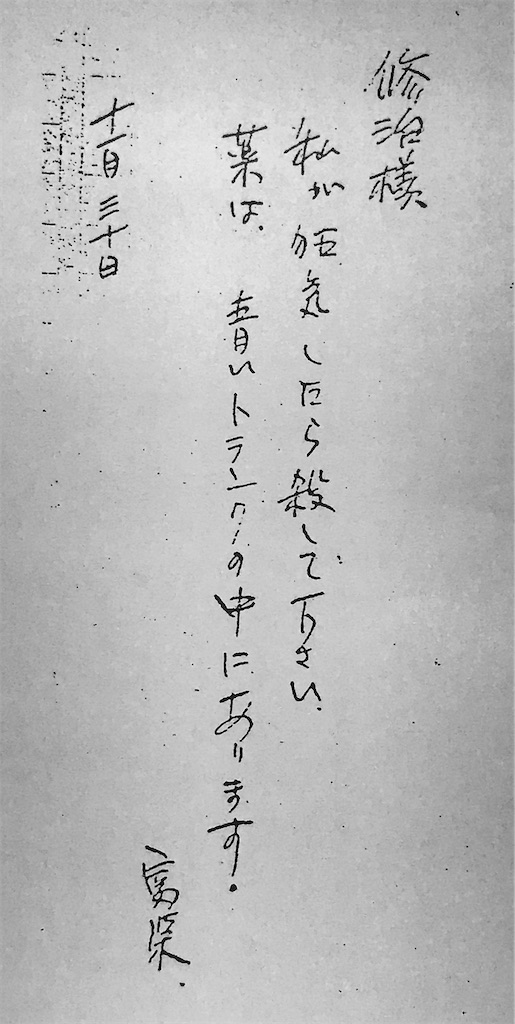 修治様
私が狂気したら殺して下さい.
薬は、青いトランクの中にあります.
富栄.
十一月三十日